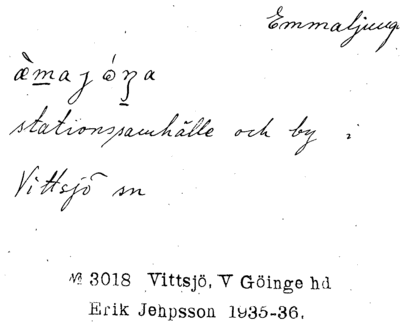 Emmaljung
æ̀m̲aȷóꞑ̲a
stationssamhälle och by i
Vittsjö sn
№ 3018 Vittsjö, V Göinge hd
Erik Jeppsson 1935-36.